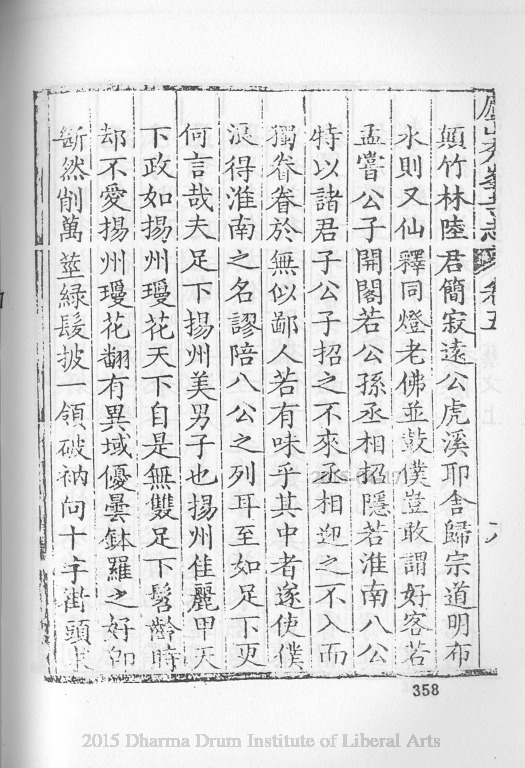 廬山秀峯寺志 卷五 八
顛竹林陸君簡寂遠公虎溪耶舍歸宗道明布
水則又仙釋同燈老佛並鼓僕豈敢謂好客若
孟嘗公子開閣若公孫丞相招隱若淮南八公
特以諸君子公子招之不來丞相迎之不入而
獨眷眷於無似鄙人若有味乎其中者遂使僕
浪得淮南之名謬陪八公之列耳至如足下更
何言哉夫足下揚州美男子也揚州佳麗甲天
下政如揚州瓊花天下自是無雙足下髫齡時
却不愛揚州瓊花翻有異域優曇鉢羅之好卽
斷然削萬莖綠髮披一領破衲向十字街頭
358
2015 Dharma Drum Institute of Liberal Arts